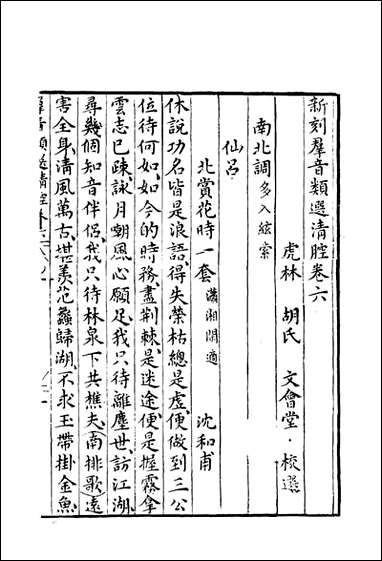 新刻羣音類選清腔卷六
虎林　胡氏　文會堂·校選
南北調多入絃索
仙呂
北賞花時一套 瀟湘閒適 沈和甫
休說功名皆是浪語得失榮枯總是虛便做到三公
位待何如如今的時務盡荆棘是迷途便是握霧拿
雲志已疎詠月朝風心願足我只待離塵世訪江湖
尋幾個知音伴侶我只待林泉下共樵夫南排歌遠
害全身清風萬古堪羨范蠡歸湖不求玉帶掛金魚
羣音類選清腔卷六